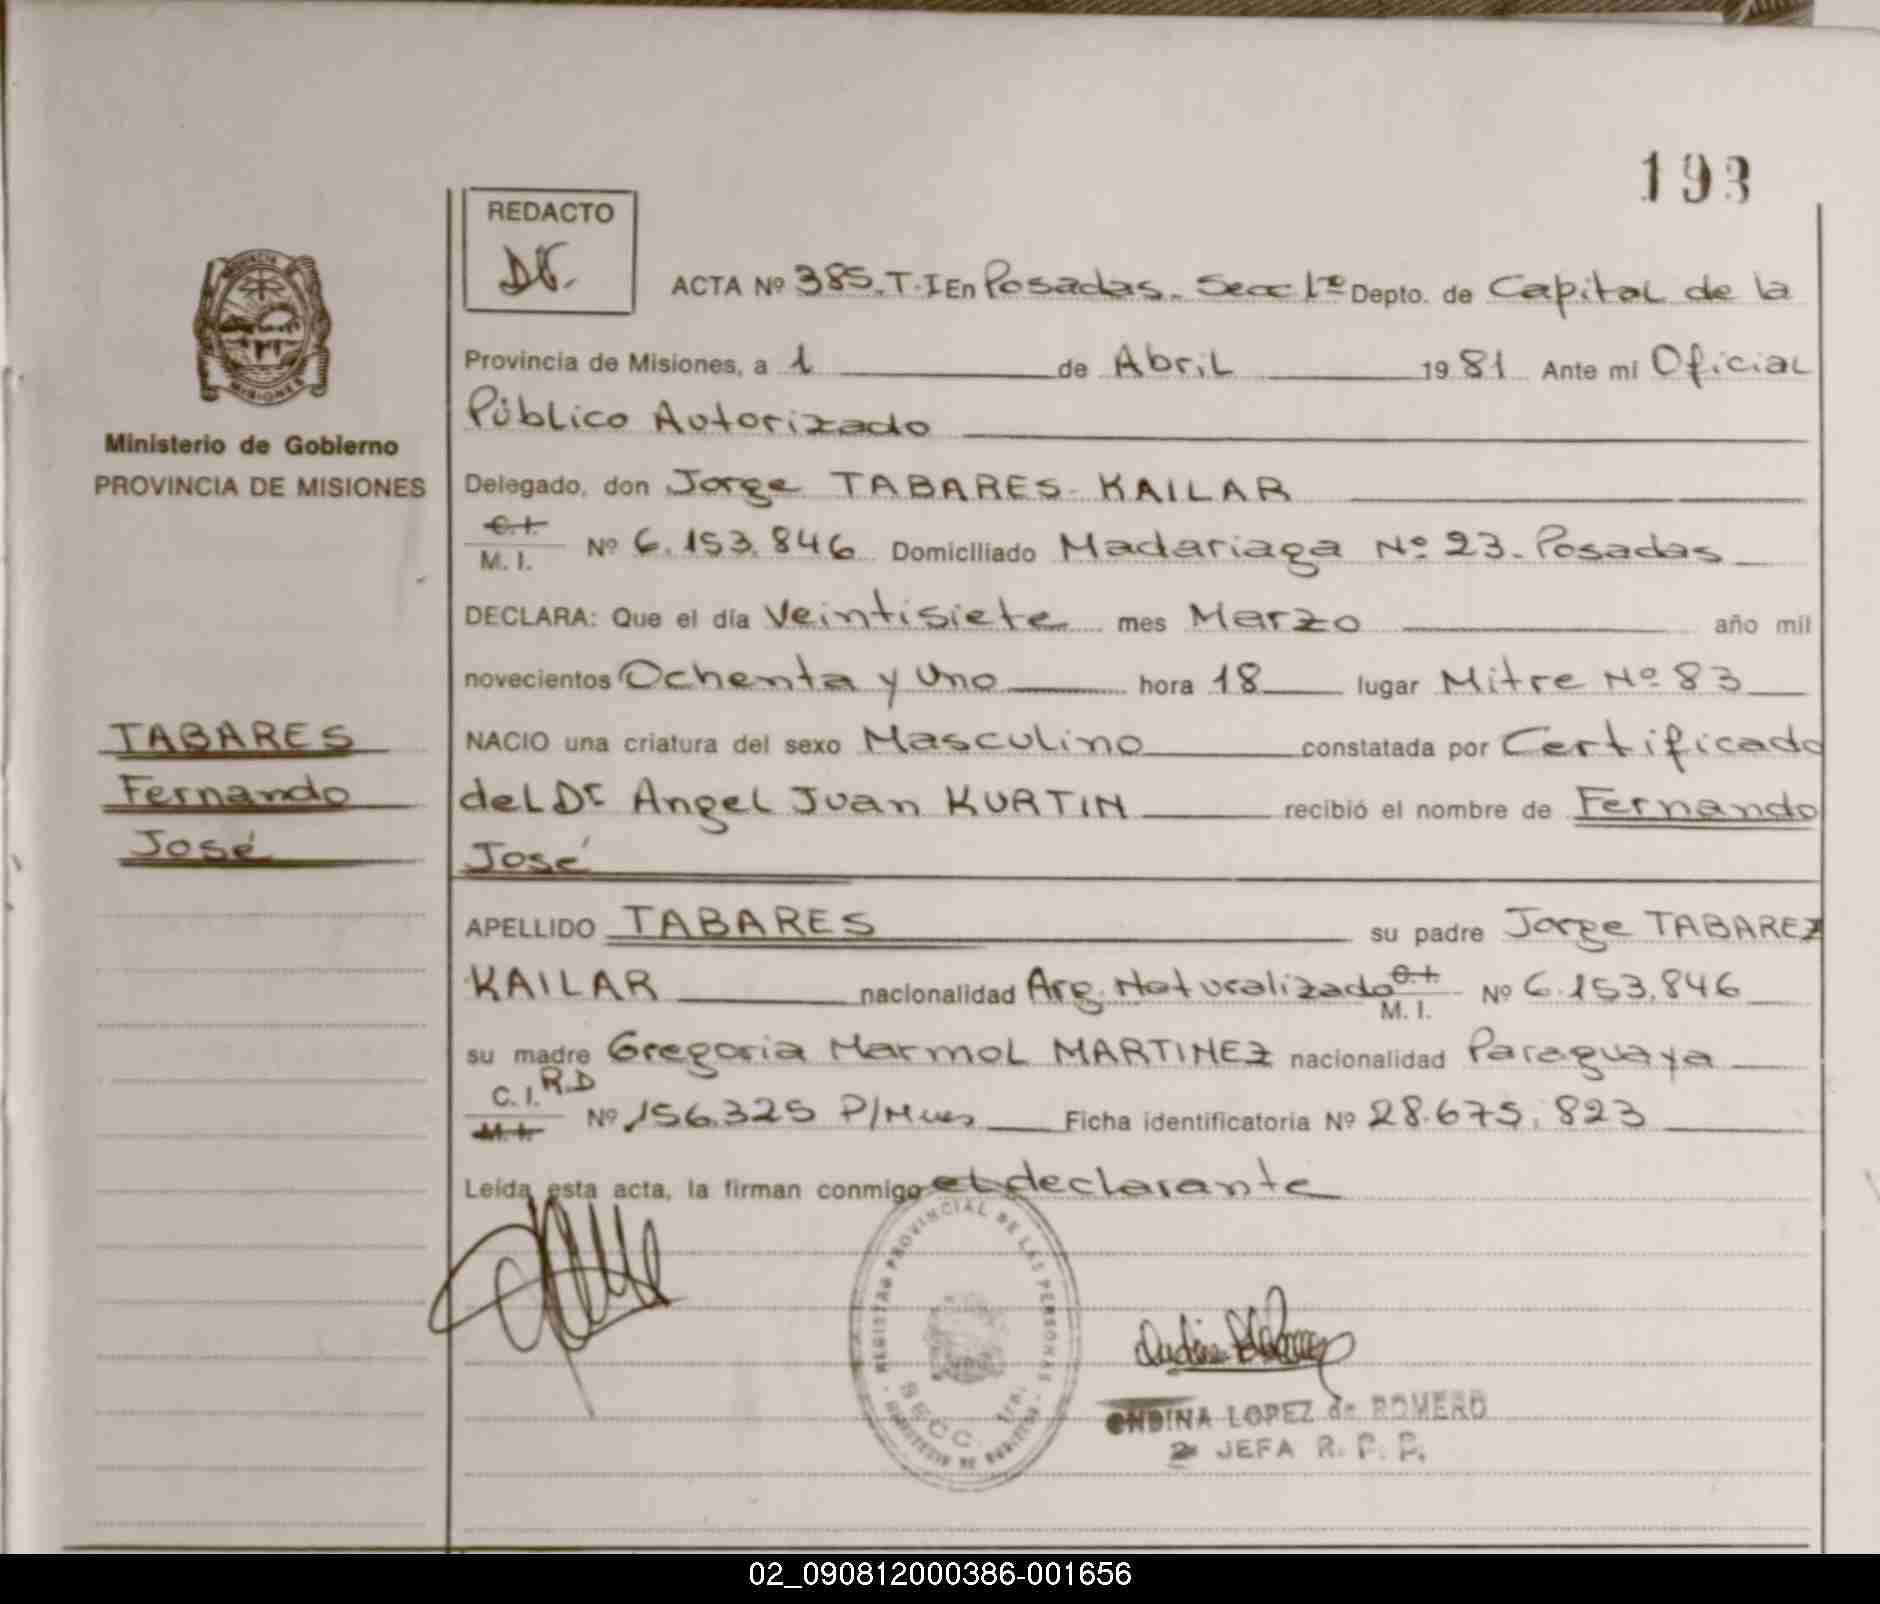 193
REDACTO
ACTA Nº 385.T.I En Posadas. Secc 1ª Depto. de Capital de la
Provincia de Misiones, a 1 de Abril 1981 Ante mi Oficial
Público Autorizado
Ministerio de Gobierno
PROVINCIA DE MISIONES
Delegado, don Jorge TABARES-KAILAR
C.I.
M. I. Nº 6.153.846 Domiciliado Madariaga Nº 23. Posadas
DECLARA: Que el día Veintisiete mes Marzo año mil
novecientos Ochenta y Uno hora 18 lugar Mitre Nº 83
TABARES
Fernando
José
NACIO una criatura del sexo Masculino constatada por Certificado
del Dr Angel Juan KURTIN recibió el nombre de Fernando
José
APELLIDO TABARES su padre Jorge TABAREZ
KAILAR nacionalidad Arg. Naturalizado C.I. M. I. Nº 6.153.846
su madre Gregoria Marmol MARTINEZ nacionalidad Paraguaya
C. I. R.D
M.I. Nº 156.325 P/Mnes Ficha identificatoria Nº 28.675.823
Leída esta acta, la firman conmigo el declarante
REGISTRO PROVINCIAL DE LAS PERSONAS
SECC 1ra.
ONDINA LOPEZ de ROMERO
2 JEFA R. P. P.
02_090812000386-001656